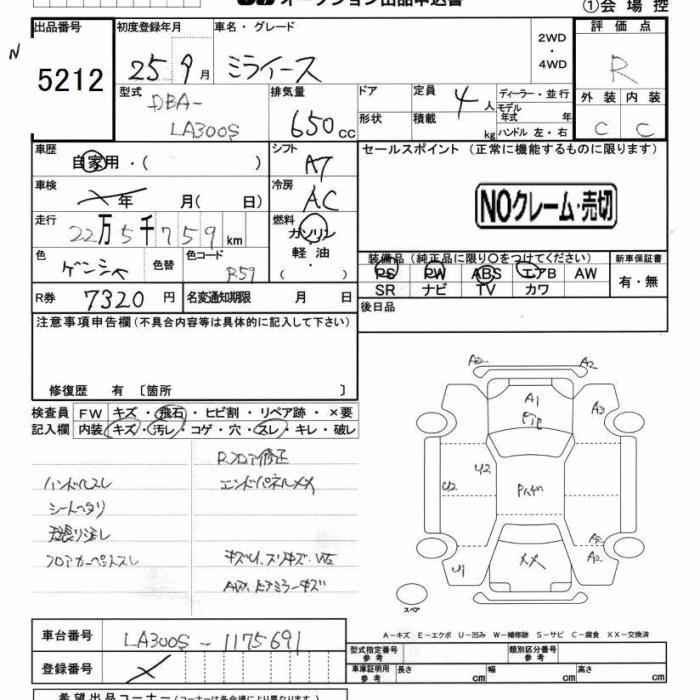 オークション出品申込書 ①会場控
出品番号 初度登録年月 車名・グレード 2WD 評価点
N 5212 25 9月 ミライース ・4WD R
型式 DBA- LA300S 排気量 650cc ドア 定員 4人 ディーラー・並行 外装 内装
形状 積載 kg モデル年式 年 ハンドル 左・右 C C
車歴 自家用・( ) シフト AT セールスポイント (正常に機能するものに限ります)
車検 年 月( 日) 冷房 AC
NOクレーム・売切
走行 22万5千759km 燃料 ガソリン
軽油
・( )
色 ゲンシャ 色替 色コード R59
装備品(純正品に限り○をつけてください) 新車保証書
PS PW ABS エアB AW 有・無
SR ナビ TV カワ
R券 7320円 名変通知期限 月 日 後日品
注意事項申告欄(不具合内容等は具体的に記入して下さい)
修復歴 有 〔箇所 〕
検査員 FW キズ・飛石・ヒビ割・リペア跡・×要
記入欄 内装 キズ・汚レ・コゲ・穴・スレ・キレ・破レ
Rフロア修正
ハンドルスレ エンドパネルメメ
シートヘタリ
天張り汚レ
フロアカーペットスレ キズU、スリキズ、W2
A2 A2
A1
A3
U2 U2
A2
A2
U1 XX
スペア
A-キズ E-エクボ U-凹み W-補修跡 S-サビ C-腐食 XX-交換済
車台番号 LA300S-1175691
登録番号
型式指定番号 参考 類別区分番号 参考
車庫証明用 参考 長さ cm 幅 cm 高さ cm
希望出品コーナー(コーナーは各会場により異なります)